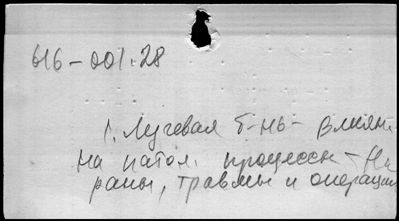 616-001.28
1. Лучевая б-нь - влиян.
на патол. процессы - На
раны, травмы и операции